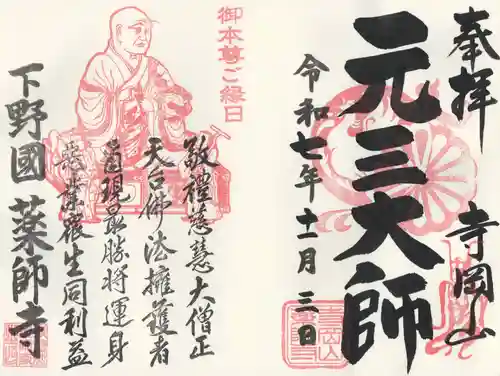 奉拝 寺岡山
元三大師
令和七年十一月三日
御本尊ご縁日
敬禮慈慧大僧正
天台佛法擁護者
示現最勝将軍身
悪業衆生同利益
下野國 薬師寺